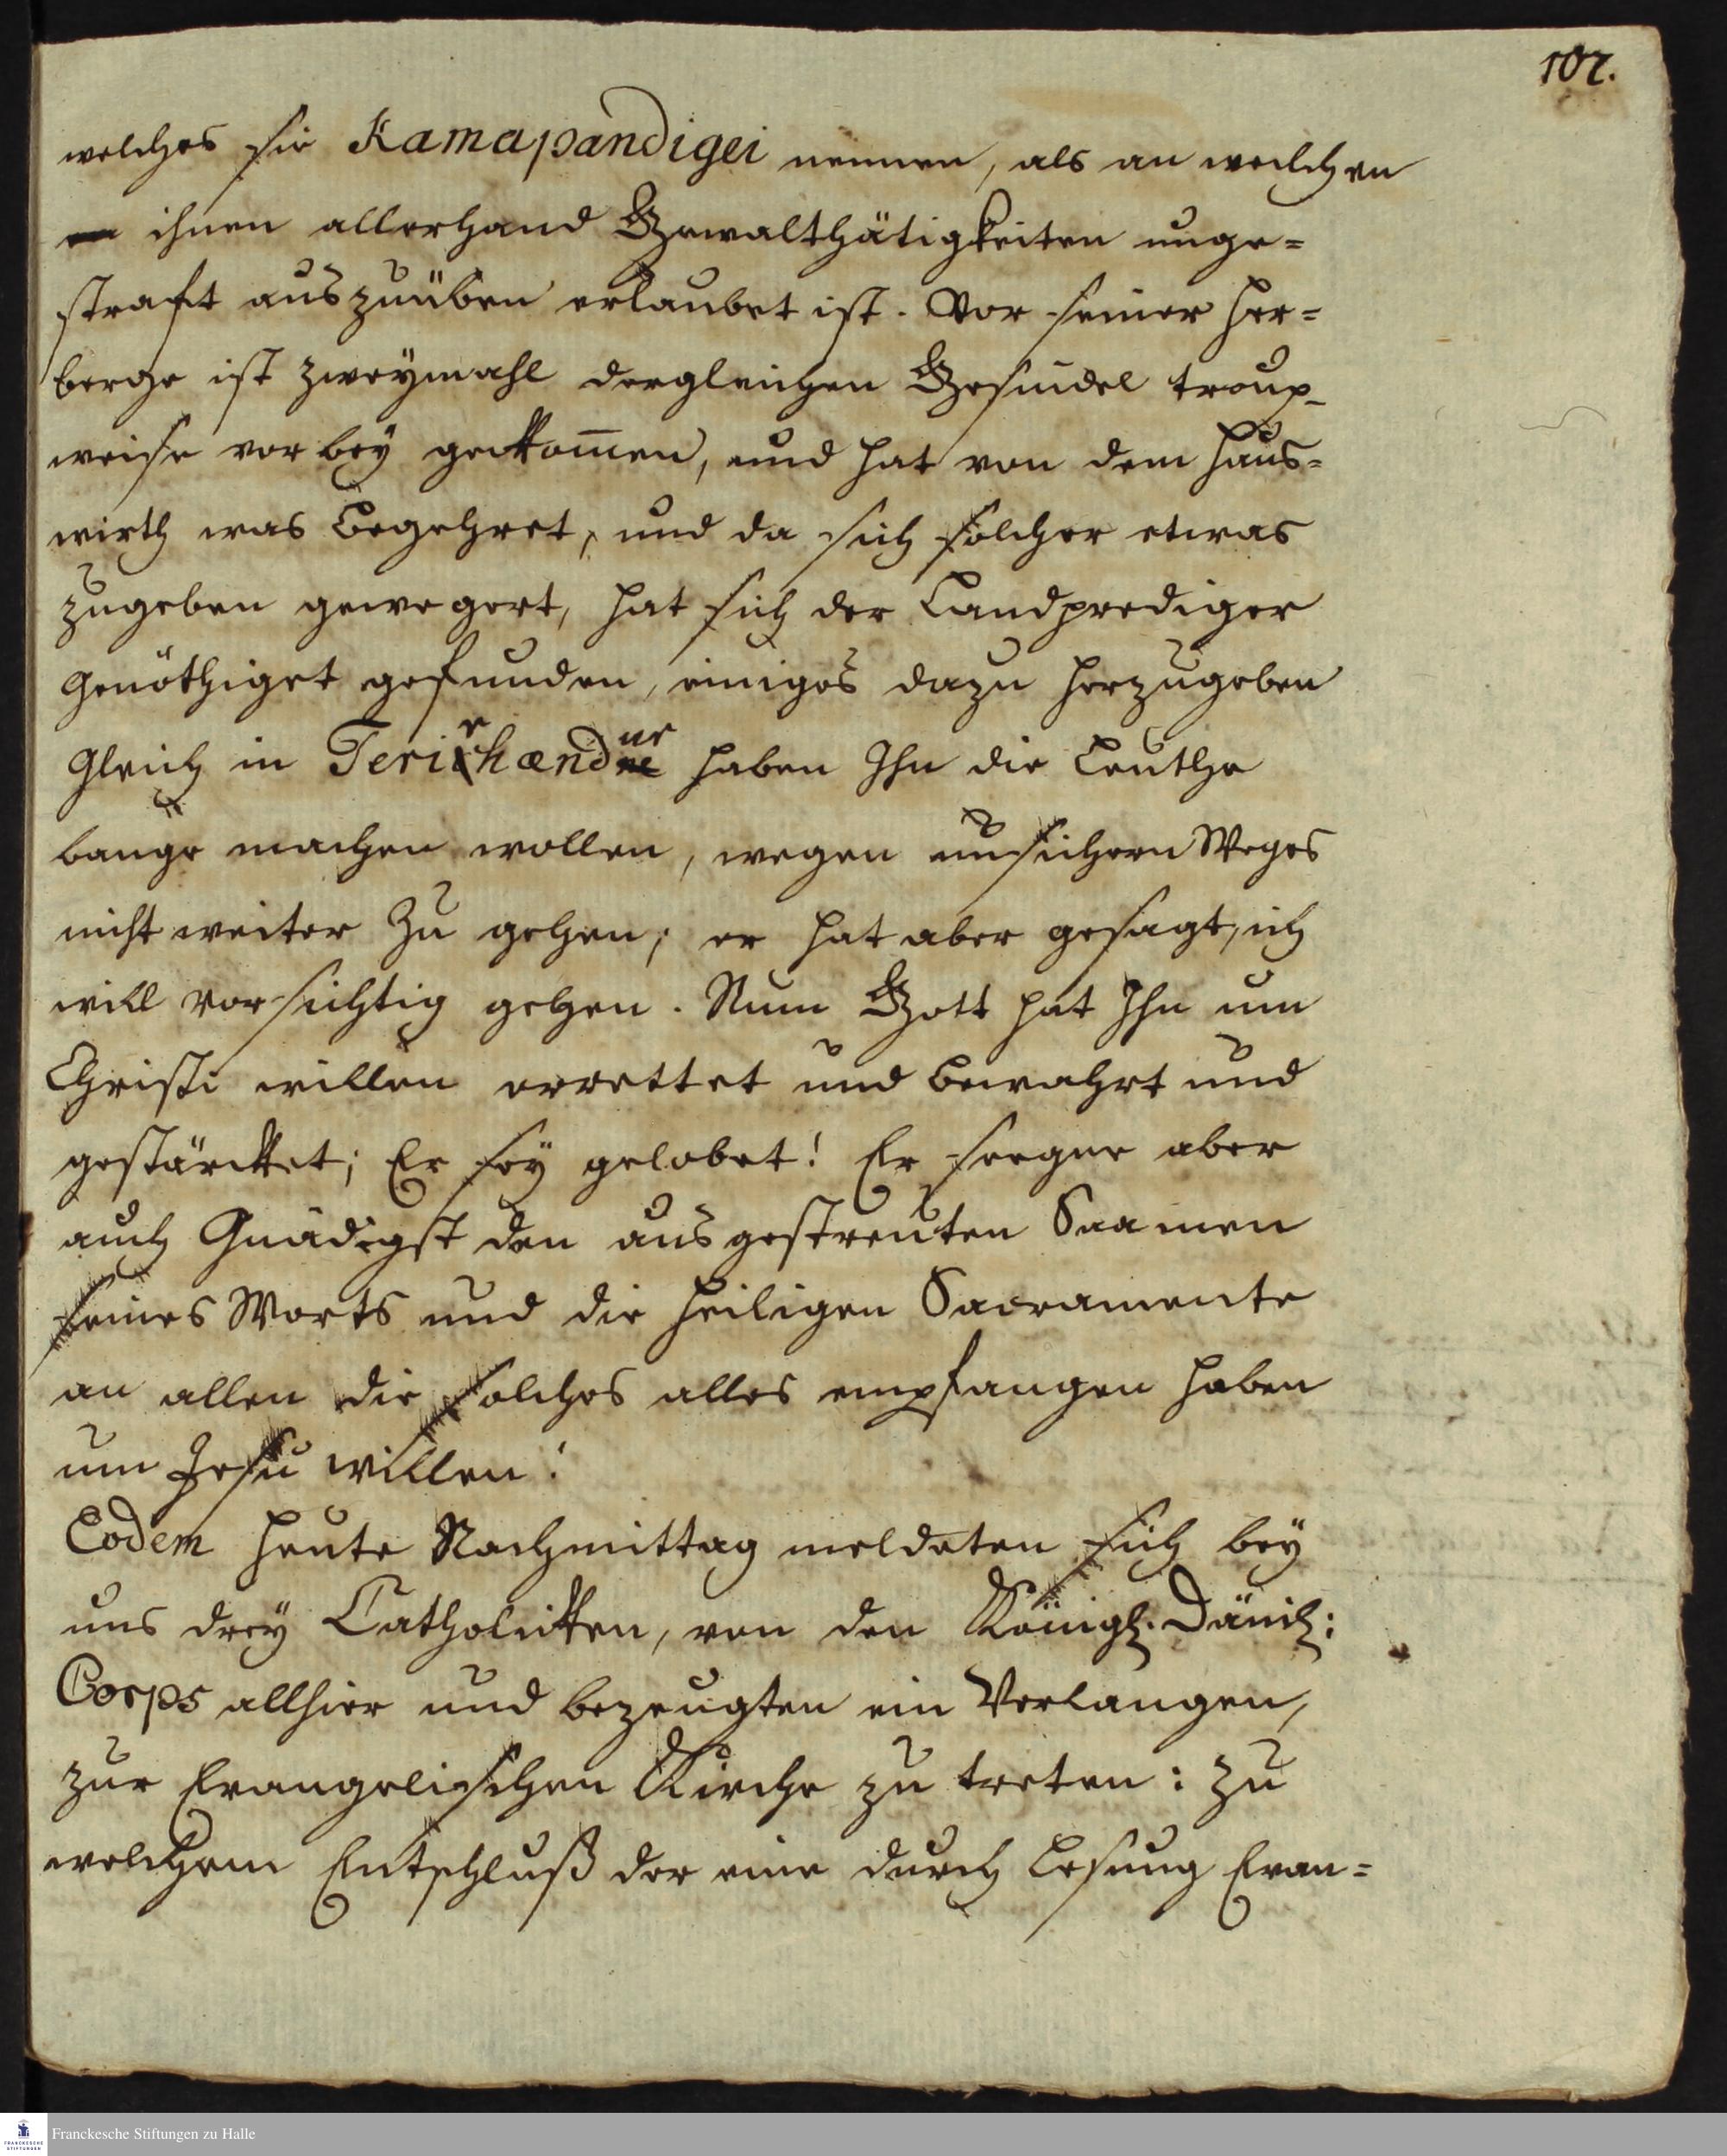 107.
welches sie Kamapandigei nennen, als an welchen
ihnen allerhand Gewaltthätigkeiten unge=
straft auszuüben erlaubet ist. Vor seiner Her=
berge ist zweymahl dergleichen Gesindel troup-
weise vor bey geckom̅en, und hat von dem Haus=
wirth was begehret, und da sich solcher etwas
zugeben gewegert, hat sich der Landprediger
genöthiget gefunden, einiges dazu herzugeben
Gleich in Terirhændur haben Ihn die Leuthe
bange machen wollen, wegen unsichern Weges
nicht weiter zu gehen; er hat aber gesagt, ich
will vorsichtig gehen. Nun Gott hat Ihn um
Christi willen errettet und bewahrt und
gestärcket; Er sey gelobet! Er seegne aber
auch Gnädigst den ausgestreuten Saamen
seines Worts und die heiligen Sacramente
an allen die solches alles empfangen haben
um Jesu willen!
Eodem heute Nachmittag meldeten sich bey
uns drey Catholicken, von den Königl. Dänisch:
Corps allhier und bezeugten ein Verlangen,
zur Evangelischen Kirche zu treten: zu
welchem Entschluß der eine durch Lesung Evan=
FRANCKESCHE STIFTUNGEN
Franckesche Stiftungen zu Halle